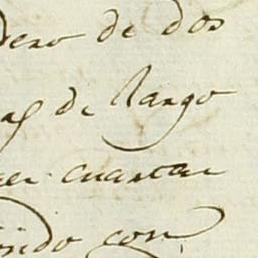 dero de dos
as de largo
cuartas
ido con